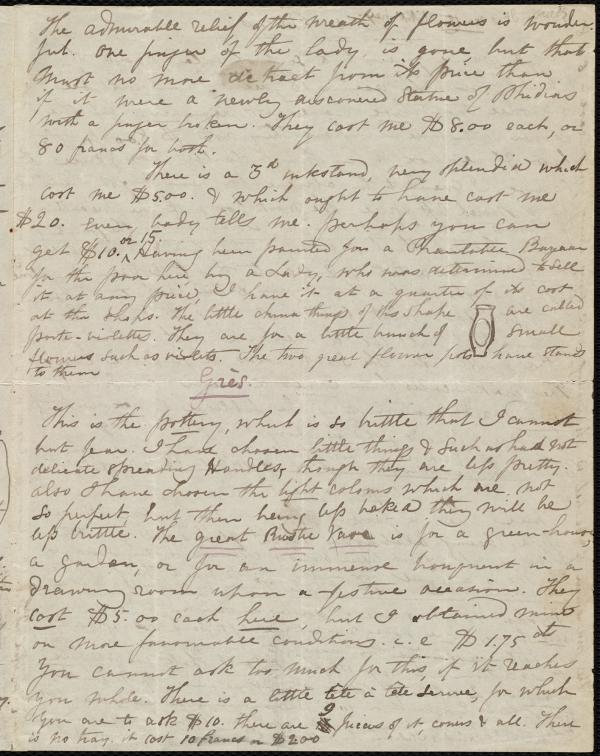 The admirable relief of the wreath of flowers is wonder-
ful. One finger of the lady is gone but that
must no more detract from its price than
if it were a newly discovered Statue of Phidias
with a finger broken. They cost me $8.00 each, or
80 francs for both.
There is a 3d inkstand, very splendid which
cost me $5.00. & which ought to have cost me
$20. every body tells me. perhaps you can
get $10. or 15 Having been painted for a Charitable Bazaar
for the poor here by a Lady, who was determined to sell
it at any price, I have it at a quarter of its cost
at the shops. The little china things of this shape are called
porte-violettes. They are for a little bunch of small
flowers such as violets. The two great flower pots have stands
to them
Grès.
This is the pottery, which is so brittle that I cannot
but fear. I have chosen little things & such as had not
delicate spreading Handles, though they are less pretty.
also I have chosen the light colours which are not
so perfect, but then being less baked they will be
less brittle. The great Rustic Vase is for a green-house,
a garden, or for an immense bouquet in a
drawing room upon a festive occasion. They
cost $5.00 each here, but I obtained mine
on more favourable conditions. i.e $1.75 cts
You cannot ask too much for this, if it reaches
you whole. There is a little tête à tête service, for which
you are to ask $10. there are 9 pieces of it, covers & all. There
is no tray. it cost 10 francs or $2.00